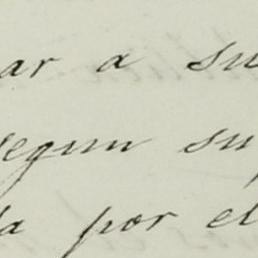 ar a su
segun su
da por el